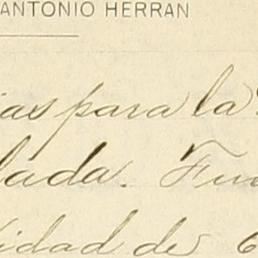 ANTONIO HERRAN
ias para la
lada. Fun
idad de